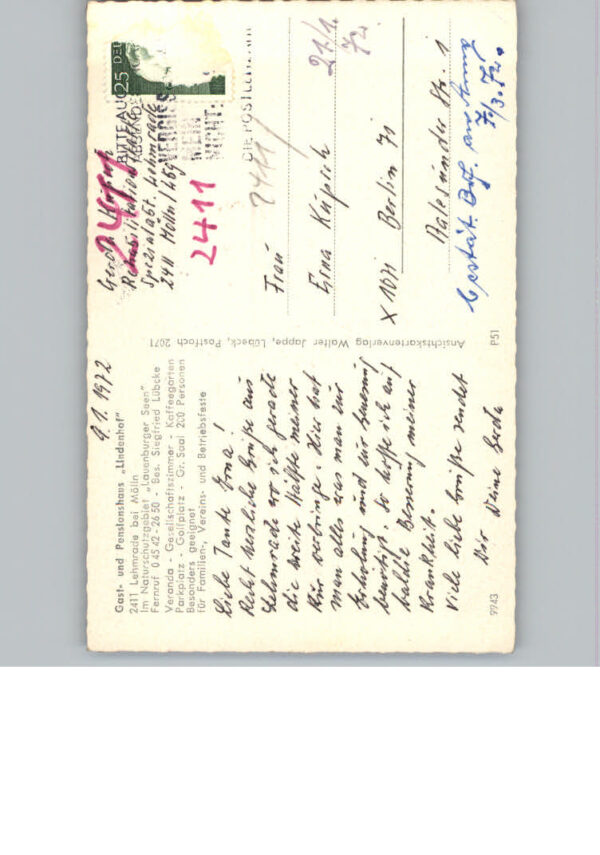 Gast- und Pensionshaus „Lindenhof"
2411 Lehmrade bei Mölln
Im Naturschutzgebiet „Lauenburger Seen"
Fernruf 0 45 42 - 26 50 - Bes. Siegfried Lübcke
Veranda - Gesellschaftszimmer - Kaffeegarten
Parkplatz - Golfplatz - Gr. Saal 200 Personen
Besonders geeignet
für Familien-, Vereins- und Betriebsfeste
9.1.1972
Liebe Tante Erna!
Recht herzliche Grüße aus
Lehmrade wo ich gerade
die zweite Hälfte meiner
Kur verbringe. Hier hat
man alles was man zur
Erholung und zur Genesung
benötigt. So hoffe ich auf
baldige Besserung meiner
Krankheit.
Viele liebe Grüße sendet
Dir Deine Gerda
9943
Ansichtskartenverlag Walter Jappe, Lübeck, Postfach 2071
P51
Gerda Küpsch
Spezialabt. Lehmrade
2411 Mölln / Lbg
2411
2411
25
BITTE AUCH
NICHT:
DIE POSTLEITZAHL
2411
21/1.
72
Frau
Erna Küpsch
X 1071 Berlin 71
Aalesunder Str. 1
7/3.72.